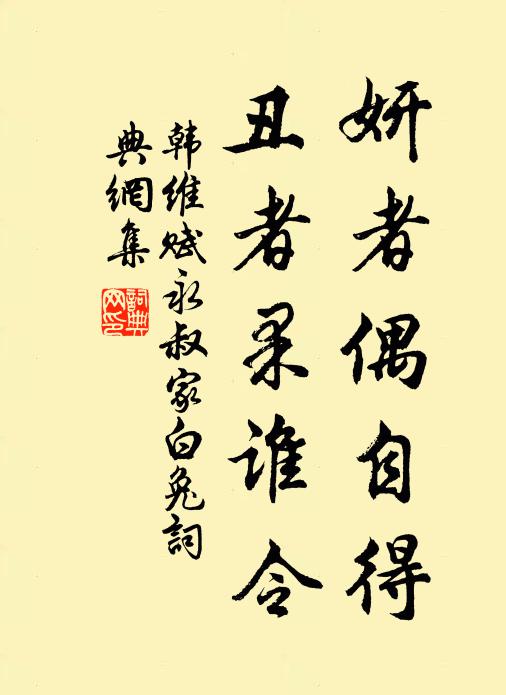 妍者偶自得
丑者果谁令
韩维赋永叔家白兔詞
典網集
詞典
网印